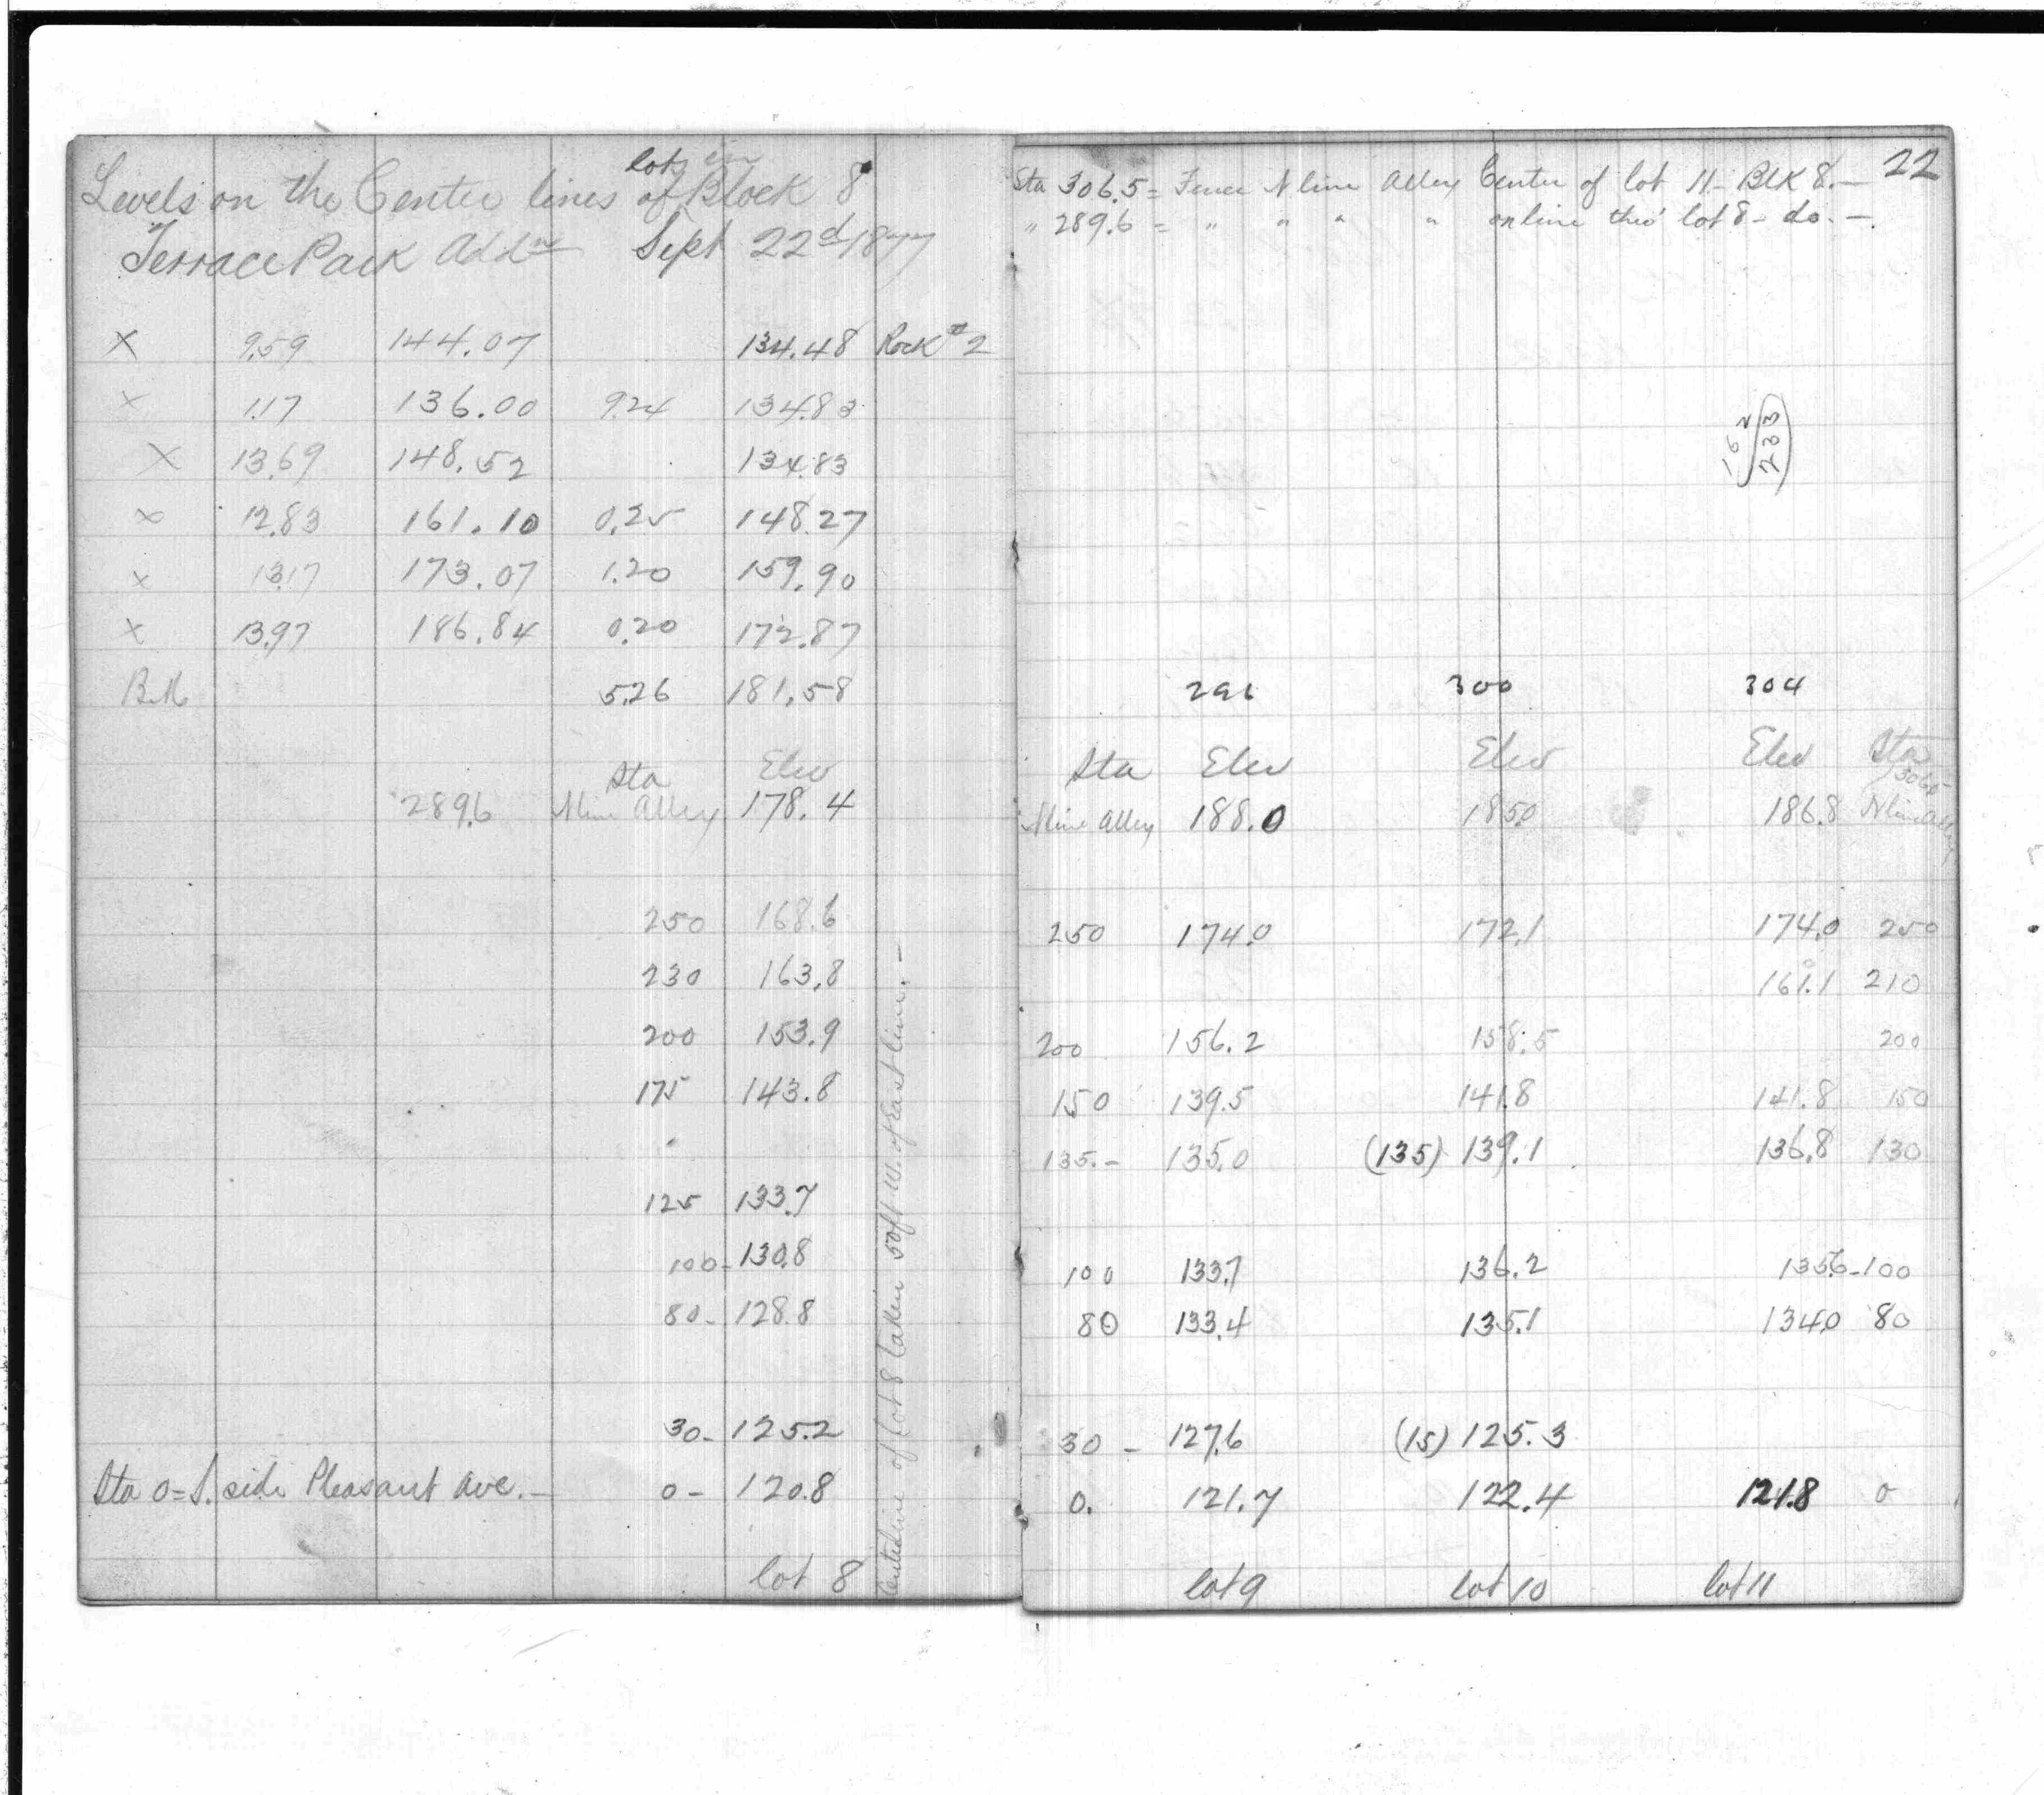 Levels on the Center lines of lots in Block 8
Terrace Park Addn Sept 22d 1877
X 9.59 144.07 134.48 Rock #2
X 1.17 136.00 9.24 134.83
X 13.69 148.52 134.83
X 12.83 161.10 0.25 148.27
X 13.17 173.07 1.20 159.90
X 13.97 186.84 0.20 172.87
B.M. 5.26 181.58
Sta Elev
289.6 N line Alley 178.4
250 168.6
230 163.8
200 153.9
175 143.8
125 133.7
100 - 130.8
80 - 128.8
30 - 125.2
Sta 0 = S. side Pleasant Ave. - 0 - 120.8
lot 8
Centerline of lot 8 taken 50 ft W. of East line. -
22
Sta 306.5 = Fence N line Alley Center of lot 11 - BLK 8. -
" 289.6 = " " " " on line thro' lot 8 - do. -
16 2
233
296 300 304
Sta Elev Elev Elev Sta
306.5
N line Alley 188.0 185.0 186.8 N line Alley
250 174.0 172.1 174.0 250
161.1 210
200 156.2 158.5 200
150 139.5 141.8 141.8 150
135. - 135.0 (135) 139.1 136.8 130
100 133.7 136.2 135.6 - 100
80 133.4 135.1 134.0 80
30 - 127.6 (15) 125.3
0. 121.7 122.4 121.8 0
lot 9 lot 10 lot 11